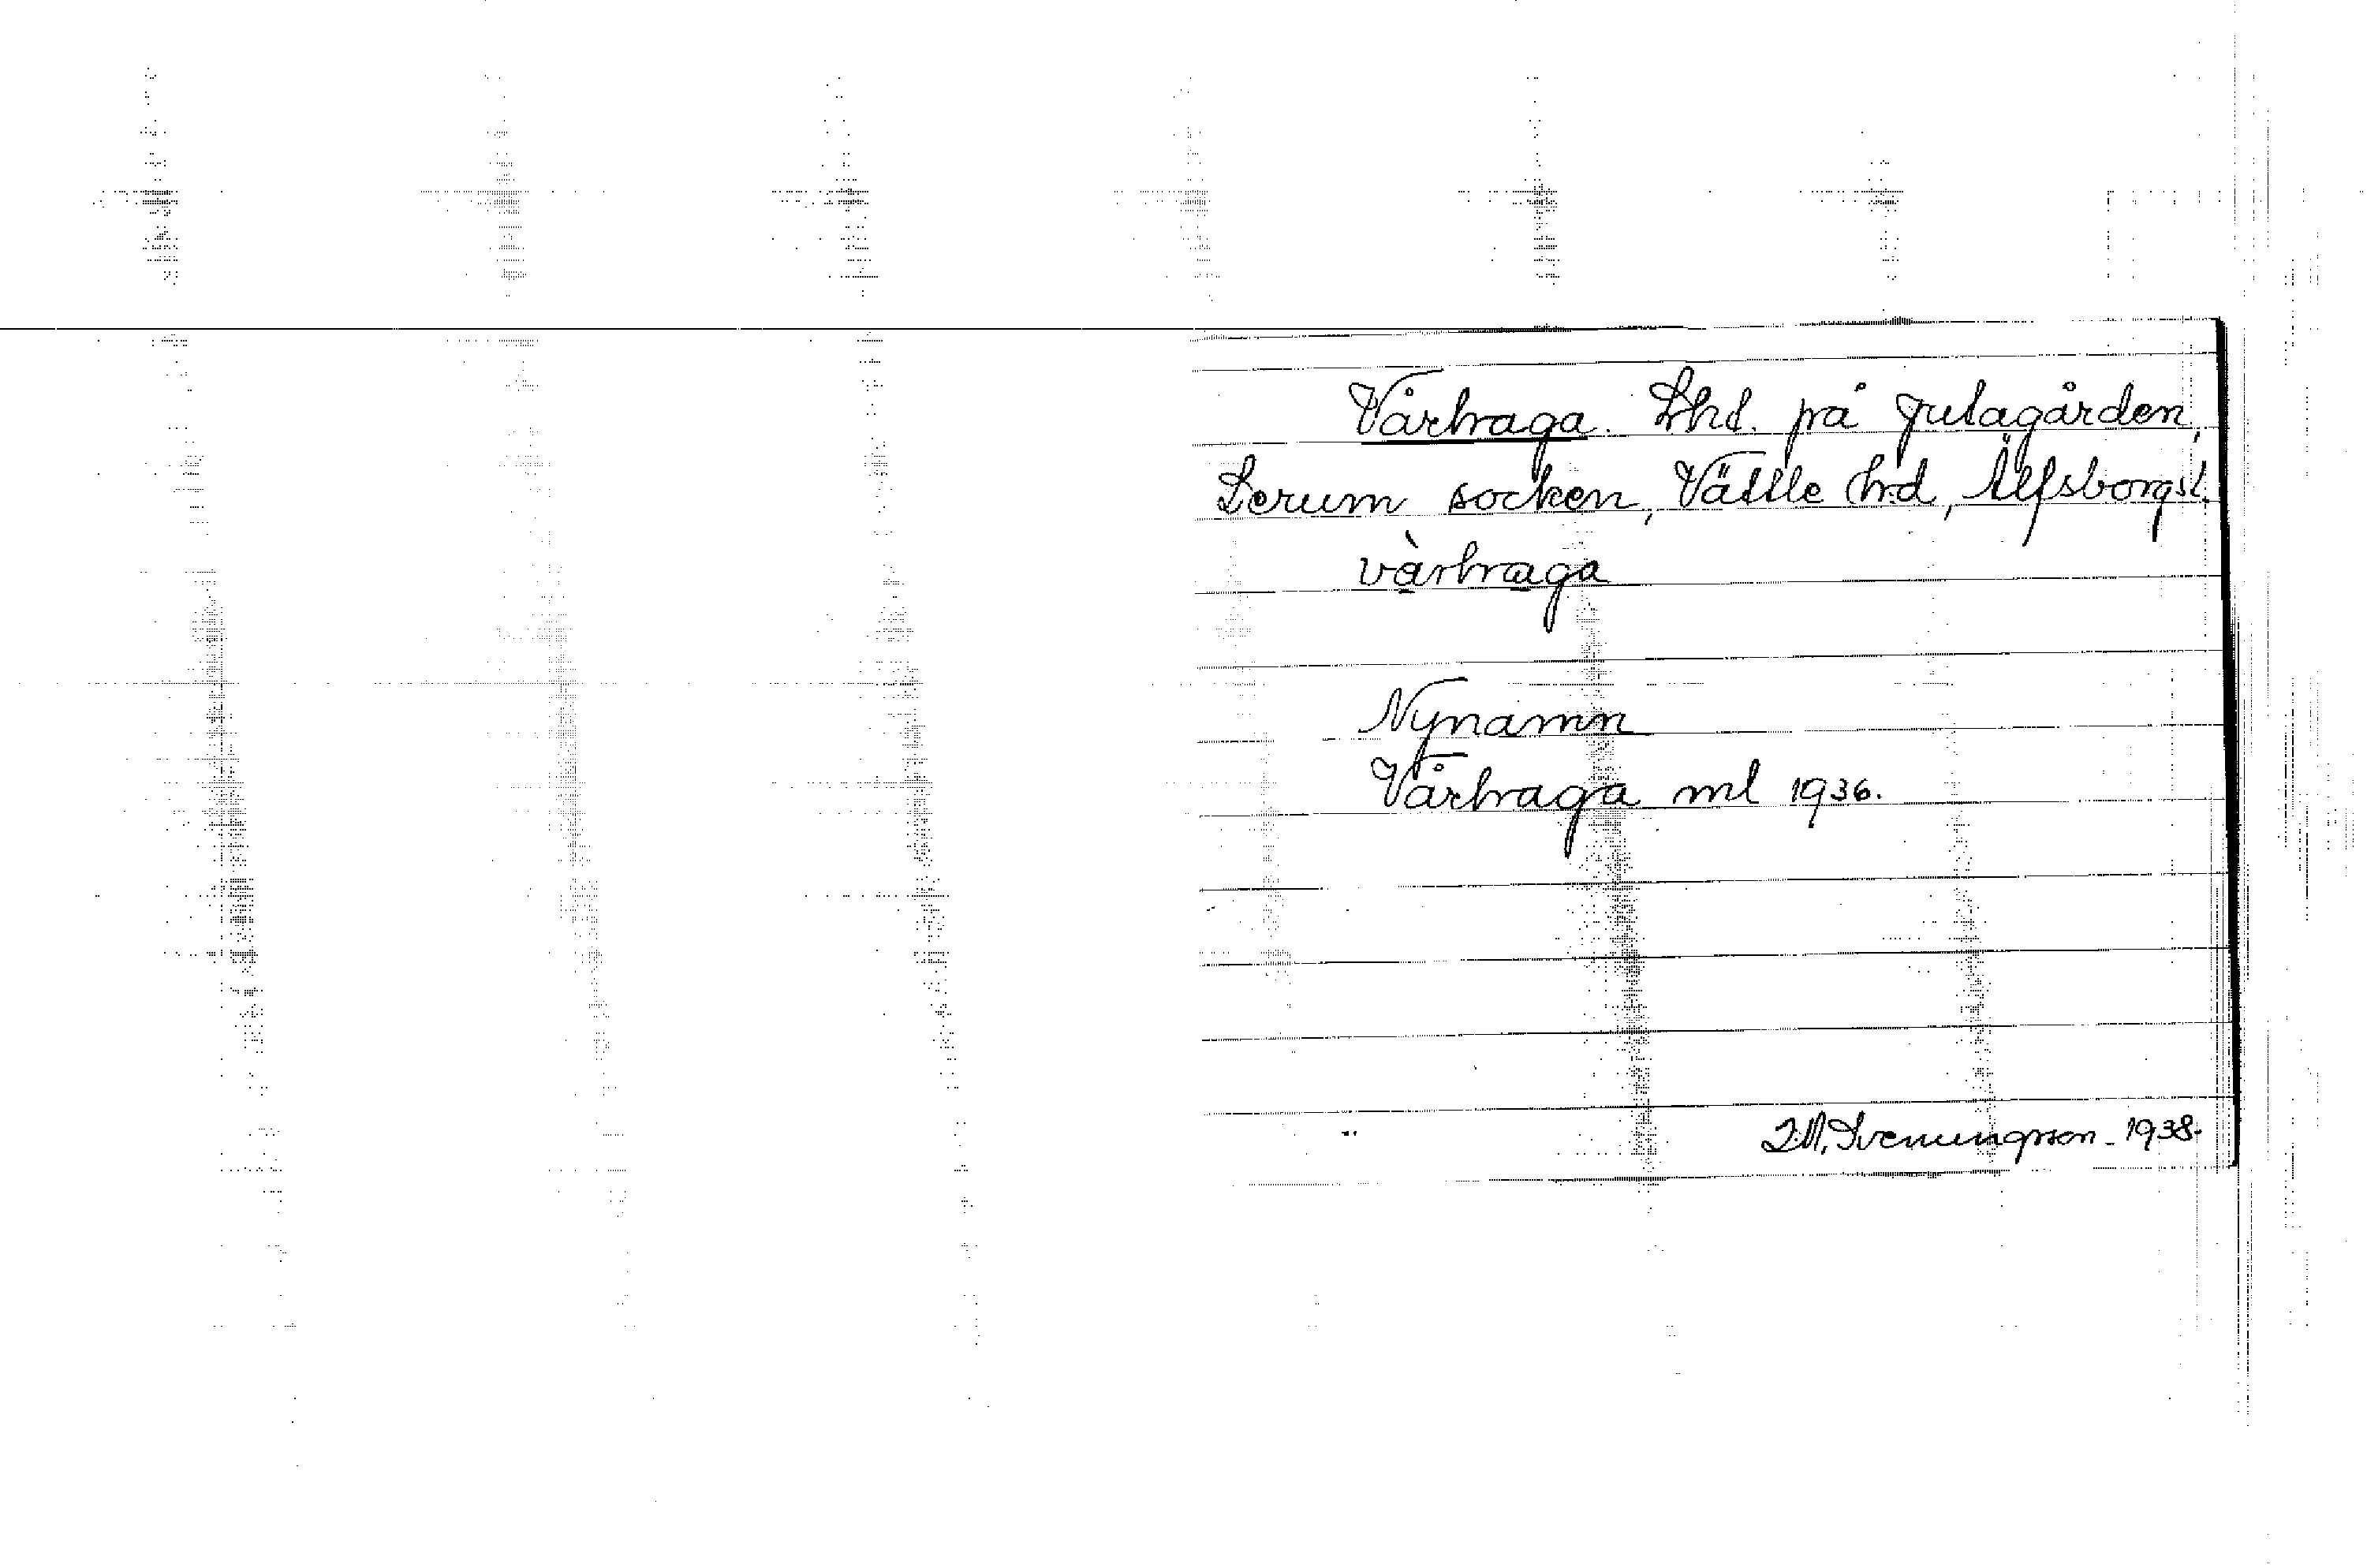 Vårhaga. Lhd. på Julagården,
Lerum socken, Vättle hrd, Älfsborgs l.
vàrhaga
Nynamn
Vårhaga ml 1936.
I.M. Svenungsson. 1938.